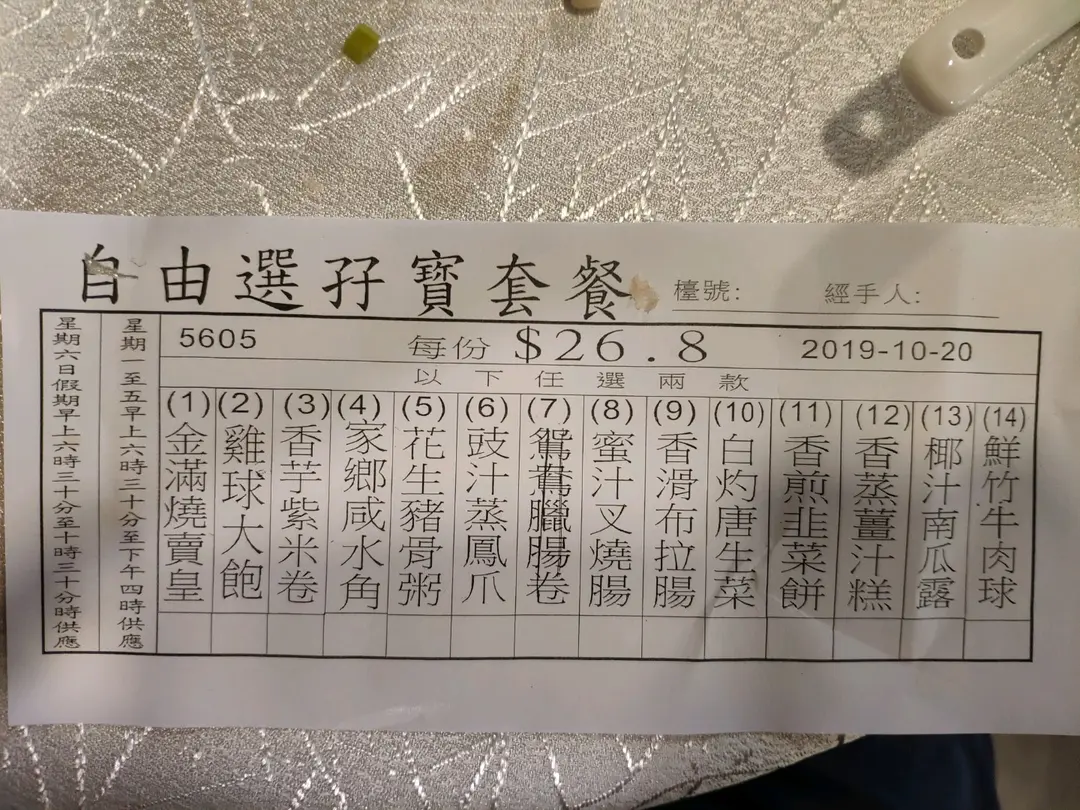 自由選孖寶套餐
檯號:
經手人:
星期六日假期早上六時三十分至十時三十分時供應
星期一至五早上六時三十分至下午四時供應
5605
每份 $26.8
2019-10-20
以下任選兩款
(1)金滿燒賣皇
(2)雞球大飽
(3)香芋紫米卷
(4)家鄉咸水角
(5)花生豬骨粥
(6)豉汁蒸鳳爪
(7)鴛鴦臘腸卷
(8)蜜汁叉燒腸
(9)香滑布拉腸
(10)白灼唐生菜
(11)香煎韭菜餅
(12)香蒸薑汁糕
(13)椰汁南瓜露
(14)鮮竹牛肉球